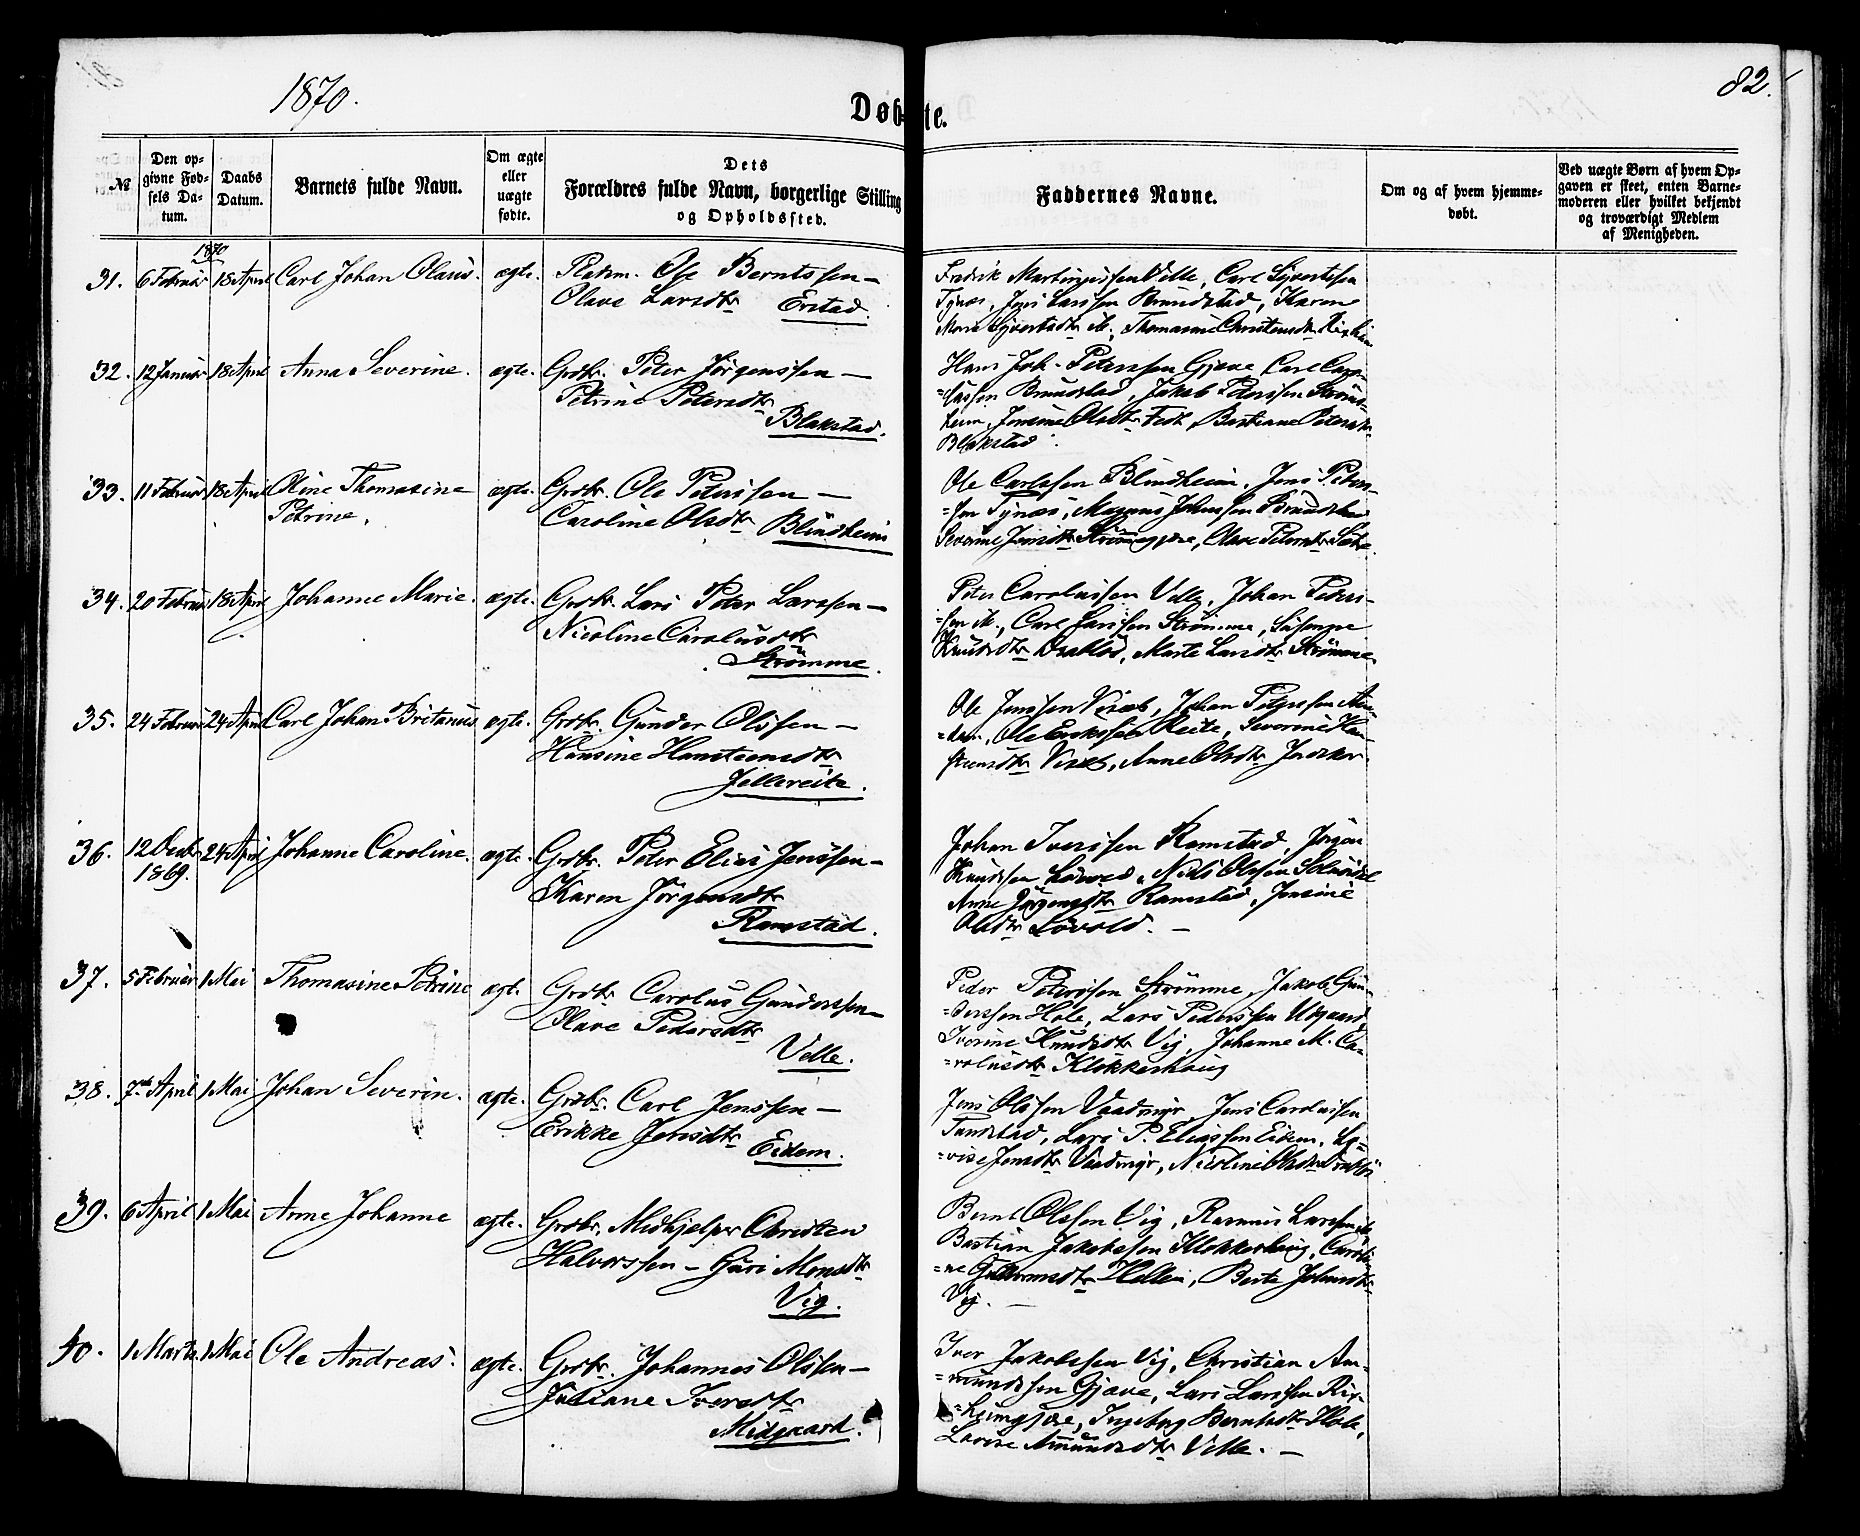 1870.
82.
Døbte.
№
Den opgivne Fødsels Datum.
Daabs Datum.
Barnets fulde Navn.
Om ægte eller uægte fødte.
Dets Forældres fulde Navn, borgerlige Stilling og Opholdssted.
Faddernes Navne.
Om og af hvem hjemmedøbt.
Ved uægte Børn af hvem Opgaven er skeet, enten Barnemoderen eller hvilket bekjendt og troværdigt Medlem af Menigheden.
1870
31. 6 Februar 18 April Carl Johan Olaus. ægte. Pldsm. Ole Berntssen –
Olave Larsdtr Erstad.
Fredrik Velle, Carl Syvertssen
Tynæs, Jens Larssen Brundstad, Karen
Marie Syvertsdtr M., Thomasine Christensdtr
32. 12 Januar 18 April Anna Severine. ægte. Grdbr. Peter Jørgenssen –
Petrine Petersdtr
Blakstad.
Hans Joh. Peterssen Gjære, Carl Caro-
=lussen Brundstad, Jakob Peterssen Strøms-
heim, Jensine Olsdtr, Bastiane Petersdtr
Blakstad.
33. 11 Februar 18 April Oline Thomasine ægte. Grdbr. Ole Peterssen –
Petrine. Caroline Olsdtr Blindheim
Ole Carlssen Blindheim, Jens Peters-
=sen Tynæs, Magnus Johnssen Brundstad
Severine Jensdtr Strømmegjære, Olave Petersdtr
34. 20 Februar 18 April Johanne Marie. ægte. Grdbr. Lars Peter Larssen –
Nicoline Carolusdtr
Strømme.
Peter Carolussen Velle, Johan Peders-
=sen M., Carl Larssen Strømme, Susanne
Knudsdtr Drabløs, Marte Larsdtr Strømme.
35. 24 Februar 24 April Carl Johan Britanius ægte. Grdbr. Gunder Olssen –
Hansine Hansteensdtr
Jellereite.
Ole Jenssen Viset, Johan Peterssen
Ole Erikssen Reite, Severine Han-
steensdtr Viset, Anne Olsdtr
36. 12 Decbr 24 April Johanne Caroline. ægte. Grdbr. Peter Elias Jenssen –
1869. Karen Jørgensdtr
Ramstad.
Johan Iverssen Ramstad, Jørgen
Knudssen Løvold, Niels Olssen
Anne Jørgensdtr Ramstad, Jensine
Olsdtr Løvold. –
37. 5 Februar 1 Mai Thomasine Petrine ægte. Grdbr. Carolus Gunderssen –
Olave Pedersdtr
Velle.
Peder Peterssen Strømme, Jakob Gun-
=derssen Hole, Lars Pederssen Utgaard,
Iverine Knudsdtr Vig, Johanne M. Ca-
=rolusdtr Klokkerhaug
38. 7de April 1 Mai Johan Severin. ægte. Grdbr. Carl Jenssen –
Erikke Jensdtr Eidem.
Jens Olssen Vaadmyr, Jens Carolussen
Tandstad, Lars P. Eliassen Eidem, Lo-
=vise Jensdtr Vaadmyr, Nicoline Olsdtr
39. 6 April 1 Mai Anne Johanne ægte. Grdbr. Medhjelper Christen
Halvorssen – Guri Monsdtr
Vig.
Bernt Olssen Vig, Rasmus Larssen
Bastian Jakobssen Klokkerhaug, Caroli-
=ne Guttormsdtr Hellen, Berte Johnsdtr
Vig. –
40. 1 Marts 1 Mai Ole Andreas. ægte. Grdbr. Johannes Olssen –
Juliane Iversdtr
Midgaard.
Iver Jakobssen Vig, Christian Am-
=mundssen Gjære, Lars Larssen Rix-
=heimgjære, Ingeborg Berntsdtr Hole,
Lovise Ammundsdtr Velle. –